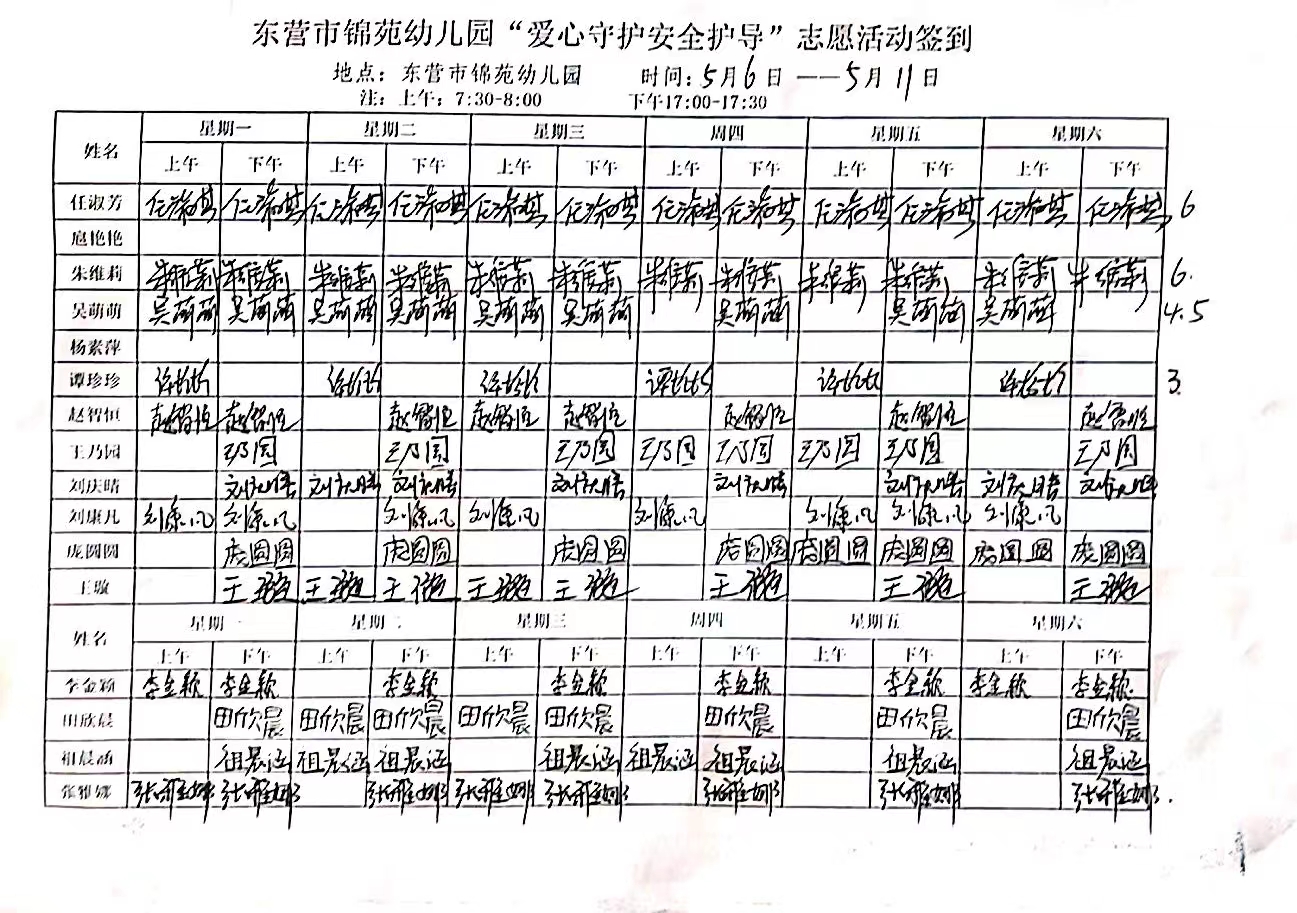 东营市锦苑幼儿园“爱心守护安全护导”志愿活动签到
地点：东营市锦苑幼儿园 时间：5月6日——5月11日
注：上午：7:30-8:00 下午17:00-17:30
姓名 星期一 星期二 星期三 周四 星期五 星期六
上午 下午 上午 下午 上午 下午 上午 下午 上午 下午 上午 下午
任淑芳 任淑芳 任淑芳 任淑芳 任淑芳 任淑芳 任淑芳 任淑芳 任淑芳 任淑芳 任淑芳 任淑芳 任淑芳 6
扈艳艳
朱维莉 朱维莉 朱维莉 朱维莉 朱维莉 朱维莉 朱维莉 朱维莉 朱维莉 朱维莉 朱维莉 朱维莉 朱维莉 6.
吴萌萌 吴萌萌 吴萌萌 吴萌萌 吴萌萌 吴萌萌 吴萌萌 吴萌萌 吴萌萌 吴萌萌 4.5
杨素萍
谭珍珍 谭珍珍 谭珍珍 谭珍珍 谭珍珍 谭珍珍 谭珍珍 3.
赵智恒 赵智恒 赵智恒 赵智恒 赵智恒 赵智恒 赵智恒 赵智恒 赵智恒
王乃园 王乃园 王乃园 王乃园 王乃园 王乃园 王乃园 王乃园 王乃园
刘庆晴 刘庆晴 刘庆晴 刘庆晴 刘庆晴 刘庆晴 刘庆晴 刘庆晴 刘庆晴
刘康凡 刘康凡 刘康凡 刘康凡 刘康凡 刘康凡 刘康凡 刘康凡 刘康凡
庞圆圆 庞圆圆 庞圆圆 庞圆圆 庞圆圆 庞圆圆 庞圆圆 庞圆圆 庞圆圆
王璇 王璇 王璇 王璇 王璇 王璇 王璇 王璇 王璇
姓名 星期一 星期二 星期三 周四 星期五 星期六
上午 下午 上午 下午 上午 下午 上午 下午 上午 下午 上午 下午
李金颖 李金颖 李金颖 李金颖 李金颖 李金颖 李金颖 李金颖 李金颖
田欣晨 田欣晨 田欣晨 田欣晨 田欣晨 田欣晨 田欣晨 田欣晨 田欣晨
祖晨涵 祖晨涵 祖晨涵 祖晨涵 祖晨涵 祖晨涵 祖晨涵 祖晨涵 祖晨涵
张雅娜 张雅娜 张雅娜 张雅娜 张雅娜 张雅娜 张雅娜 张雅娜 张雅娜